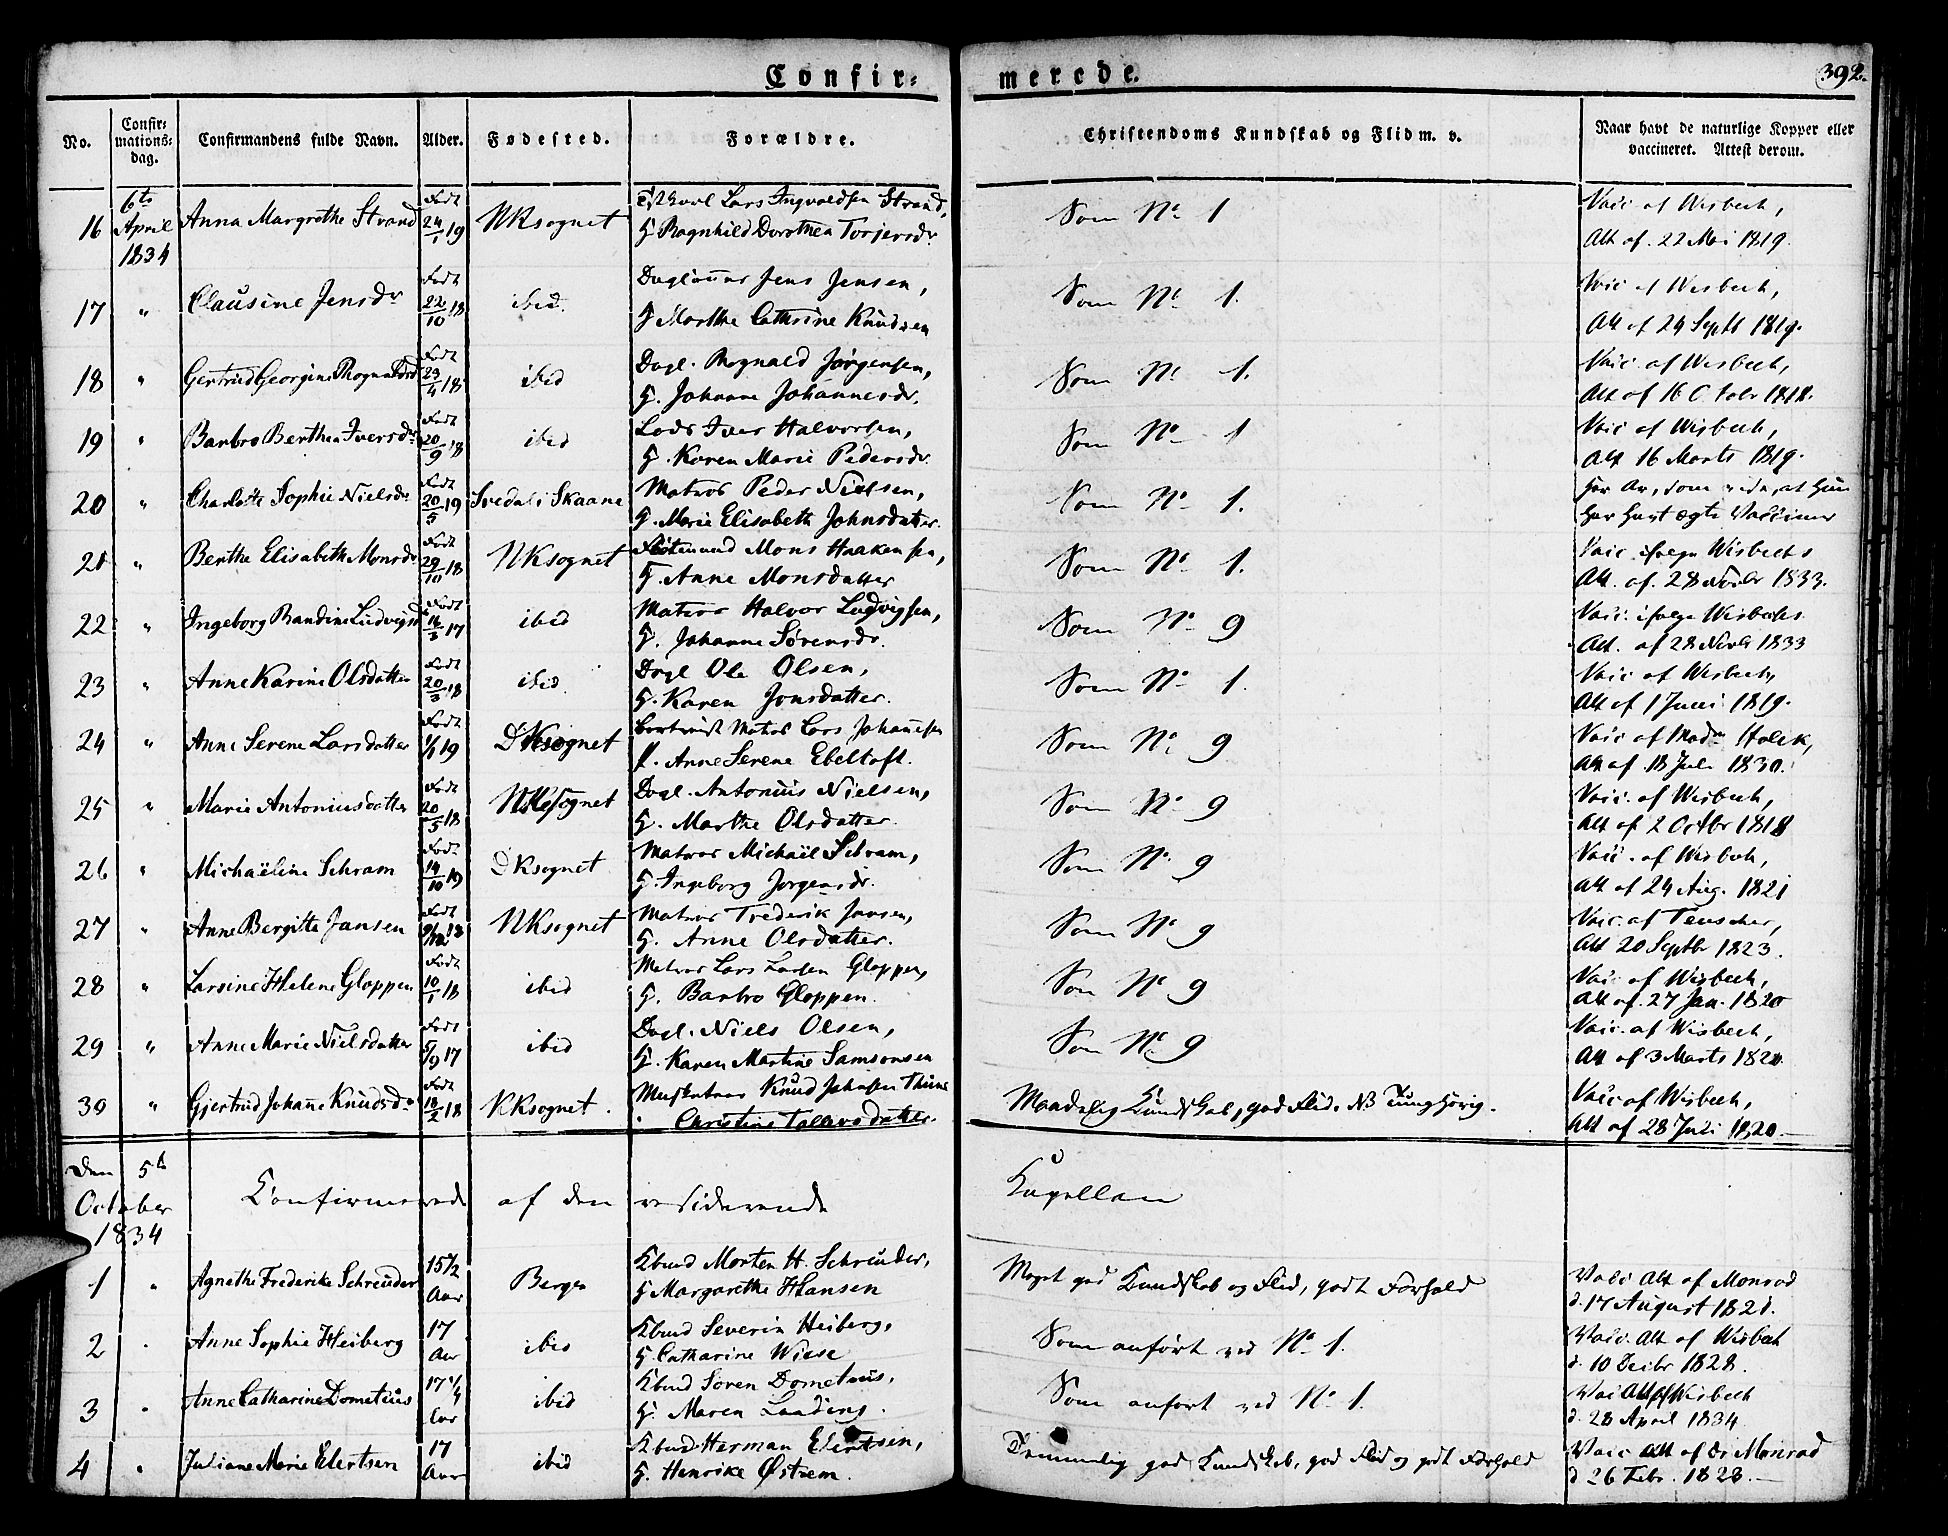 Confir-
merede.
392.
No.
Confir-
mations-
dag.
Confirmandens fulde Navn.
Alder.
Fødested.
Forældre.
Christendoms Kundskab og Flid m. v.
Naar havt de naturlige Kopper eller
vaccineret. Attest derom.
16 6te April 1834 Anna Margrethe Strand Født 24/1 19 NKsognet Lars Ingvaldsen Strand, Som No 1 Vacc af Wisbech,
H Ragnhild Dorothea Torjersdr Att af. 22 Mai 1819.
17 " Clausine Jensdr Født 22/10 18 ibid. Daglønner Jens Jensen, Som No 1. Vacc af Wisbech,
H Marthe Cathrine Knudsen Att af 24 Septb 1819.
18 " Gertrud Georgine Født 23/4 18 ibid Dagl. Rognald Jørgensen, Som No 1. Vacc. af Wisbech,
H. Johanne Johannesdr. Att af 16 Octobr 1818.
19 " Barbro Berthea Iversdr Født 20/9 18 ibid Lods Iver Halvorsen, Som No 1 Vacc af Wisbech,
H. Karen Marie Pedersdr. Att 16 Marts 1819.
20 " Charlotte Sophie Nielsdr Født 20/5 19 Svedal i Skaane Matros Peder Nielsen, Som No 1. har Ar, som at hun
H. Marie Elisabeth Johnsdatter. har havt ægte Vacciner
21 " Berthe Elisabeth Monsdr Født 29/10 18 NKsognet Mons Haakensen, Som No 1. Vacc. ifølge Wisbechs
H. Anne Monsdatter Att. af. 28 Novbr 1833.
22 " Ingeborg Randine Ludvigsd Født 16/3 17 ibid Matros Halvor Ludvigsen, Som No 9 Vacc. ifølge Wisbechs
H. Johanne Sørensdr. Att. af 28 Novbr 1833
23 " Anne Karine Olsdatter Født 20/3 18 ibid. Dagl Ole Olsen, Som No 1. Vacc af Wisbech,
H. Karen Jonsdatter. Att af 1 Juni 1819.
24 " Anne Serene Larsdatter Født 1/9 19 DKsognet Matros Lars Johannesen Som No 9 Vacc af Madm Holck,
Anne Serene Ebeltoft. Att af. 18 Juli 1830.
25 " Marie Antoniusdatter Født 20/5 18 NKsognet Dagl. Antonius Nielsen, Som No 9 Vacc. af Wisbech,
H. Marthe Olsdatter. Att af 2 Octbr 1818
26 " Michaëline Schram Født 14/10 19 DKsognet Matros Michaël Schram, Som No. 9 Vacc. af Wisbech,
H. Ingeborg Jørgensdr. Att af 24 Aug. 1821
27 " Anne Bergitte Jansen Født NKsognet Matros Frederik Jansen, Som No 9 Vacc. af Teuscher,
H. Anne Olsdatter. Att 20 Septbr 1823.
28 " Larsine Helene Gloppen Født 10/1 18 ibid Matros Lars Larsen Gloppen, Som No 9 Vacc af Wisbech,
H. Barbro Gloppen. Att af. 27 Jan. 1820
29 " Anne Marie Nielsdatter Født 5/9 17 ibid Dagl. Niels Olsen, Som No 9 Vacc. af Wisbech,
H. Karen Martine Samsonsen Att af 3 Marts 1820.
30 " Gjertrud Johanne Knudsdr Født 18/2 18 KKsognet. Knud Johnsen Maadelig Kundskab, god Flid. NB Tunghørig. Vacc af Wisbech,
Christine Tollevsdatter. Att af 28 Juli 1820.
Den 5te October 1834 Confirmerede af den residerende Kapellan
1 " Agnethe Frederike Schreuder 15 1/2 Aar Bergen Kbmd Morten H. Schreuder, Meget god Kundskab og Flid, godt Forhold Vacc Att af Monrad
H Margarethe Hansen d. 17 August 1821.
2 " Anne Sophie Heiberg 17 Aar ibid Kbmd Severin Heiberg, Som anført ved No 1. Vacc. Att af Wisbech
H. Catharine Wiese d. 10 Decbr 1828.
3 " Anne Catharine Dometius 17 1/4 Aar ibid Kbmd Søren Dometius, Som anført ved No 1. Vacc Att af Wisbech
H. Maren d. 28 April 1834
4 " Juliane Marie Elertsen 17 Aar ibid Kbmd Herman Elertsen, Temmelig god Kundskab, god Flid og godt Forhold Vacc Att af Dr Monrad
H. Henrike Østrem. d 26 Febr. 1828.